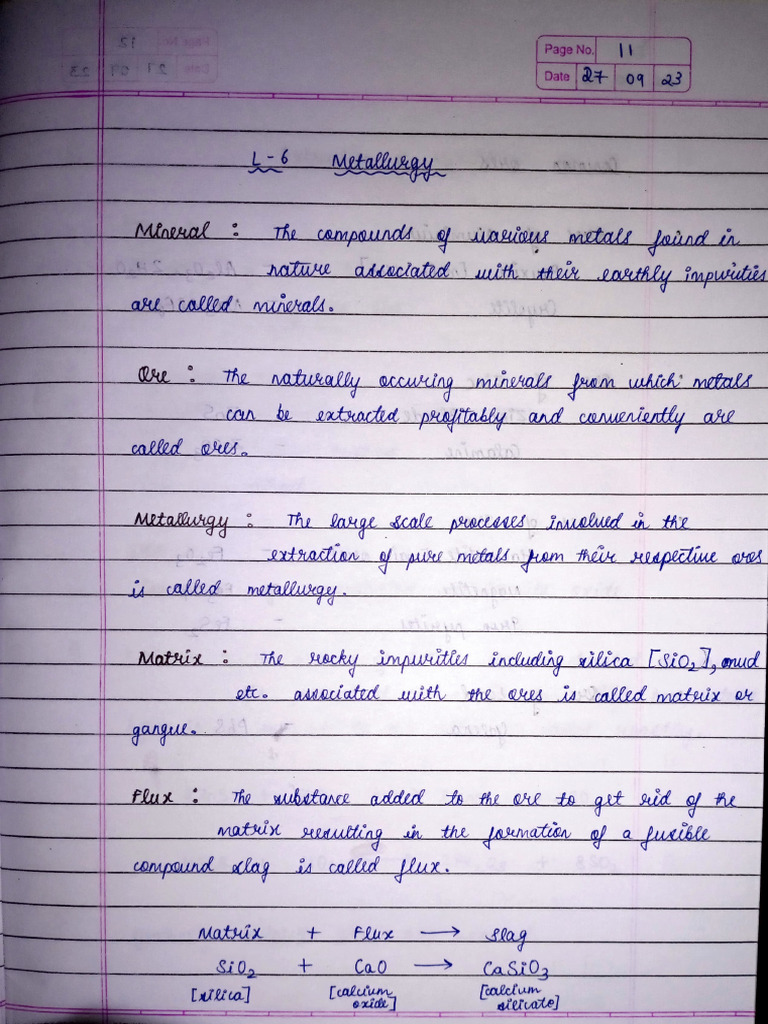 Page No. 11
Date 27 09 23
L-6 Metallurgy
Mineral : The compounds of various metals found in
nature associated with their earthly impurities
are called minerals.
Ore : The naturally occuring minerals from which metals
can be extracted profitably and conveniently are
called ores.
Metallurgy : The large scale processes involved in the
extraction of pure metals from their respective ores
is called metallurgy.
Matrix : The rocky impurities including silica [SiO2], mud
etc. associated with the ores is called matrix or
gangue.
Flux : The substance added to the ore to get rid of the
matrix resulting in the formation of a fusible
compound slag is called flux.
Matrix + Flux → Slag
SiO2 + CaO → CaSiO3
[silica] [calcium oxide] [calcium silicate]